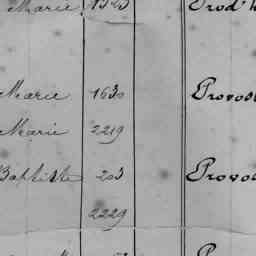 Marie 1525 Prod'h
Marie 1630 Provos
Marie 2219
Baptiste 203 Provo
2229